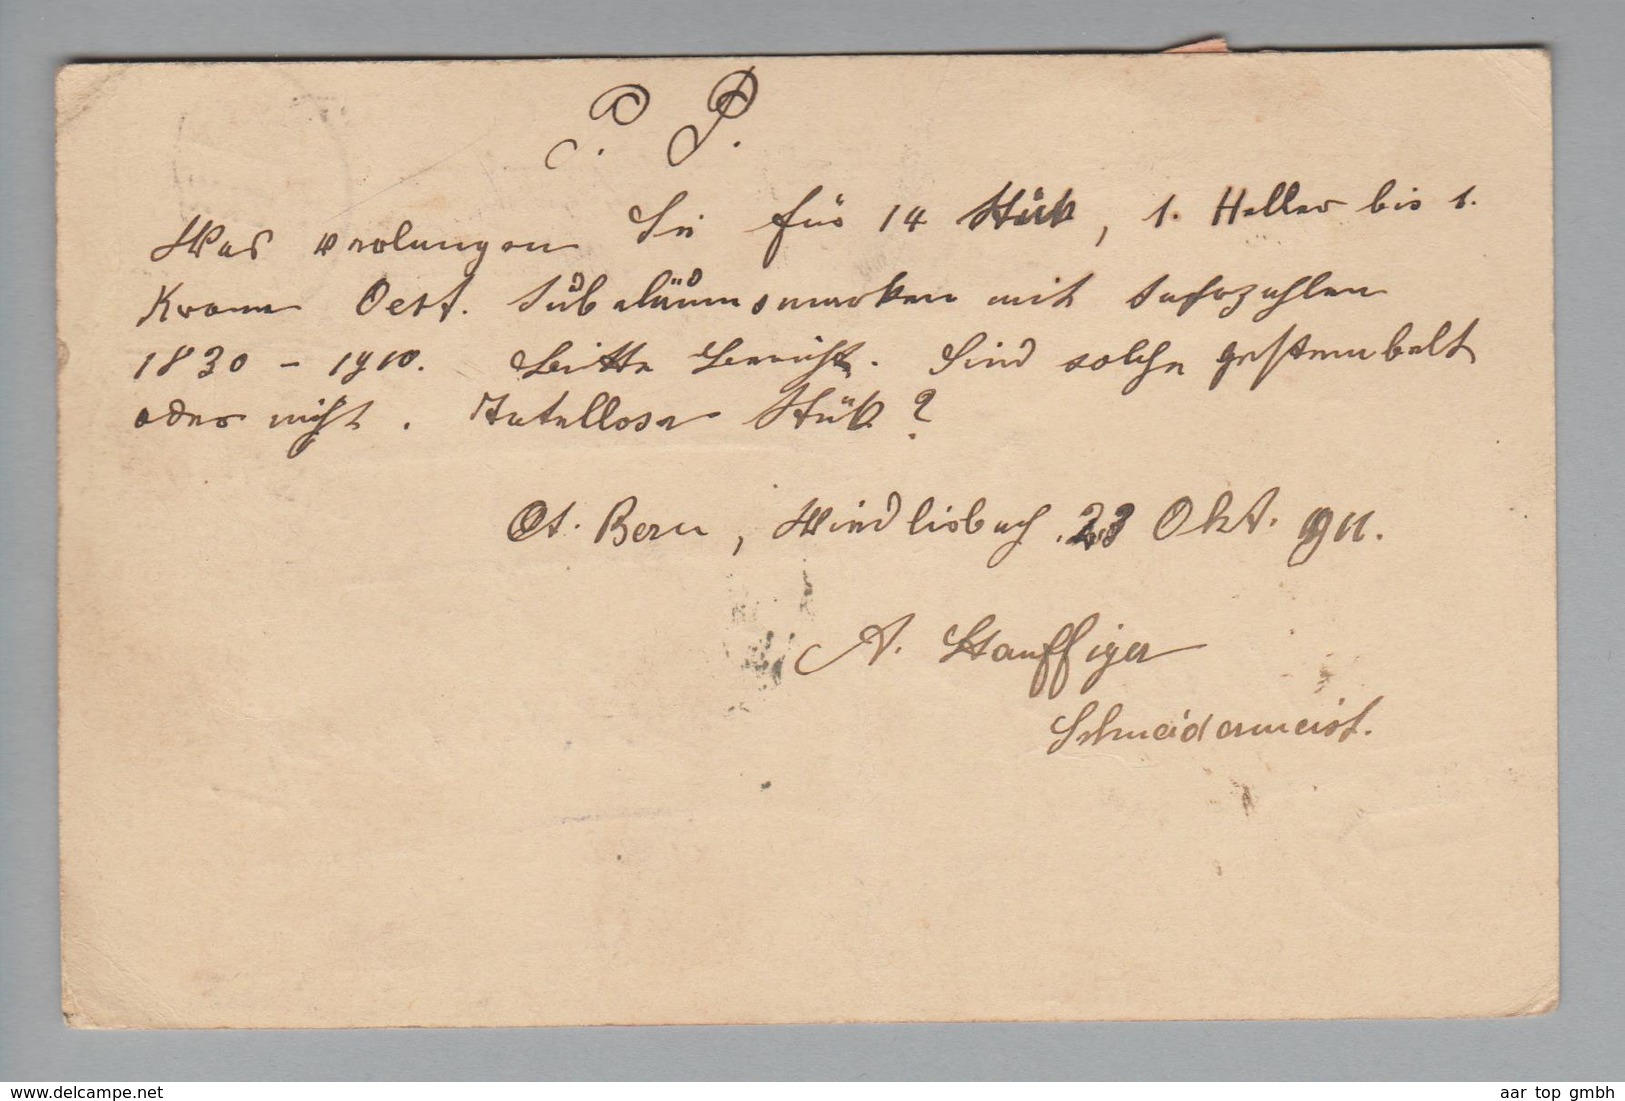 P. P.
Was verlangen Sie für 14 Stück, 1. Heller bis 1.
Krone Oest. Jubeläumsmarken mit Jahrzahlen
1830 - 1910. Bitte Bericht. Sind solche gestembelt
oder nicht. Tatellose Stük?
Ct. Bern, Wiedlisbach 23 Okt. 911.
A. Stauffiger
Schneidermeist.
delcampe.net
aar top gmbh